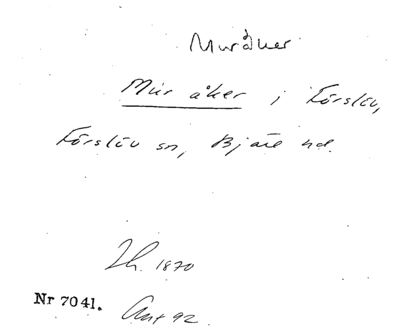 Muråker
Mur åker i Förslöv,
Förslöv sn, Bjäre hd.
Lh. 1870
Nr 7041. Ant 92